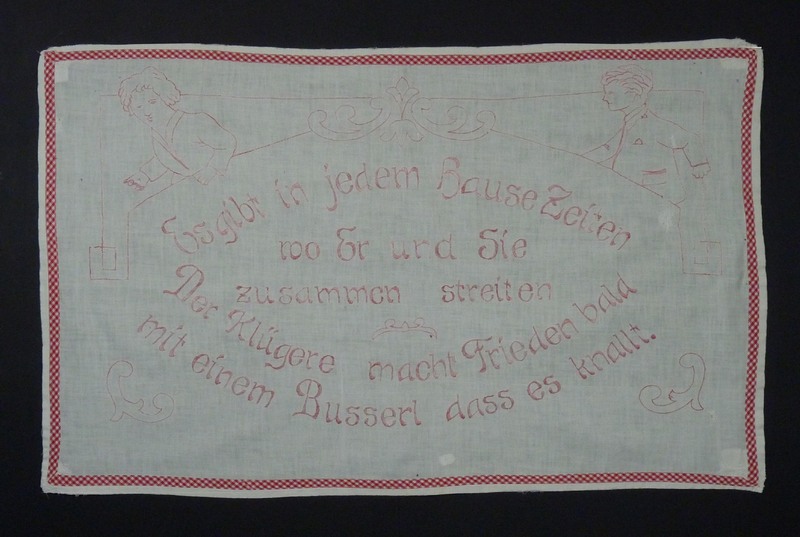 Es gibt in jedem Hause Zeiten
wo Er und Sie
zusammen streiten
Der Klügere macht Frieden bald
mit einem Busserl dass es knallt.